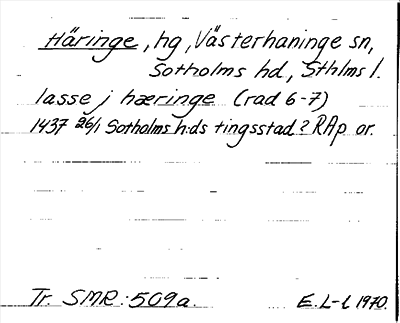 Häringe, hg, Västerhaninge sn,
Sotholms hd, Sthlms l.
lasse j hæringe (rad 6-7)
1437 26/1 Sotholms h:ds tingsstad? RAp or.
Tr. SMR: 509a. E.L-l 1970.